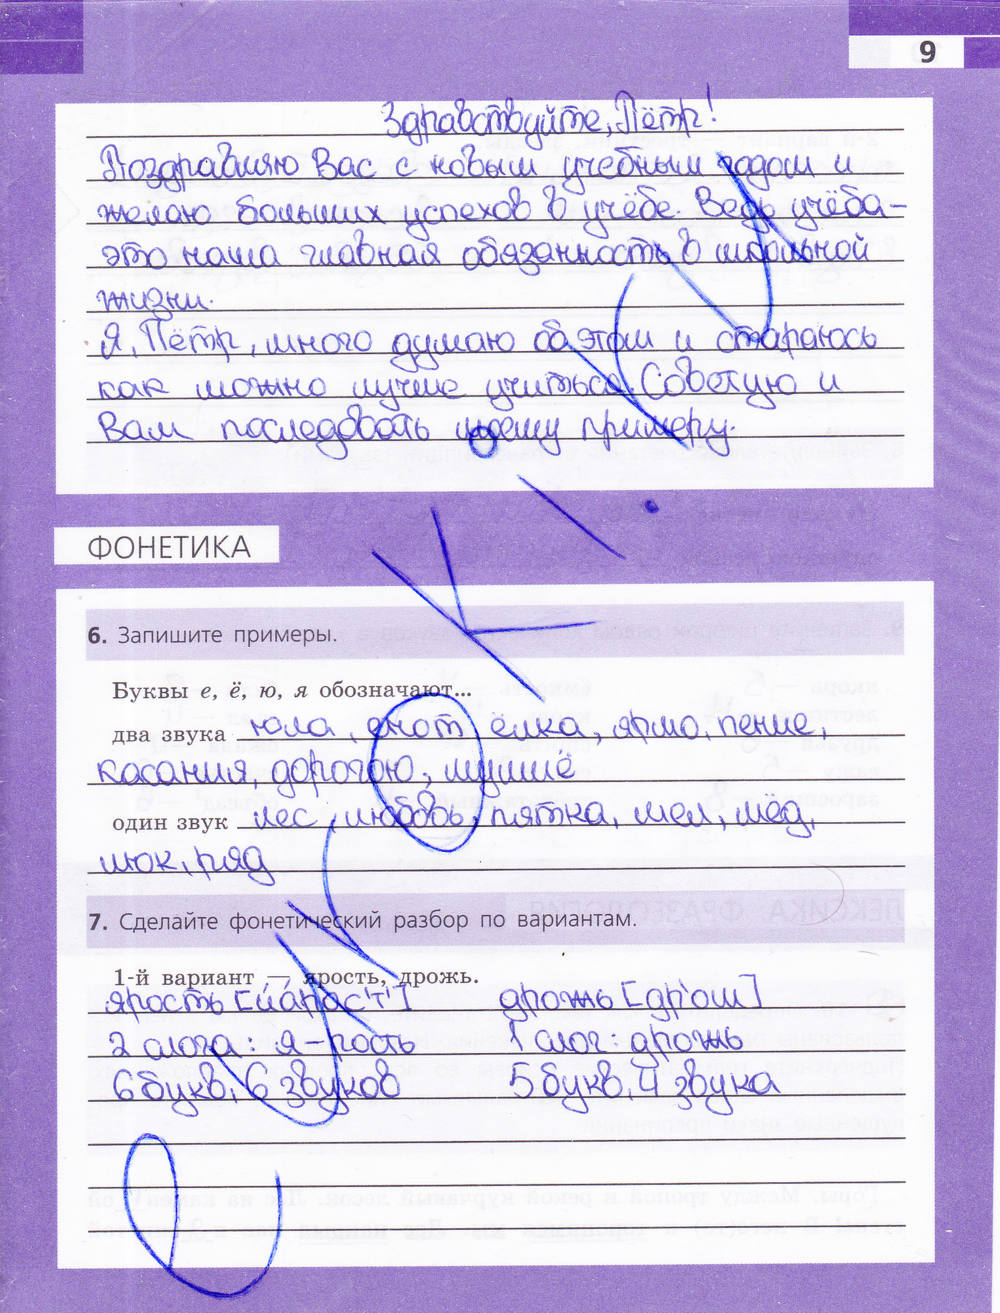 9
Здравствуйте, Пётр!
Поздравляю Вас с новым учебным годом и
желаю больших успехов в учёбе. Ведь учёба-
это наша главная обязанность в школьной
жизни.
Я, Пётр, много думаю об этом и стараюсь
как можно лучше учиться. Советую и
Вам последовать моему примеру.
ФОНЕТИКА
6. Запишите примеры.
Буквы е, ё, ю, я обозначают...
два звука юла, енот, ёлка, ярмо, пение,
касания, дорогою,
один звук лес, любовь, пятка, мел, мёд,
люк, ряд
7. Сделайте фонетический разбор по вариантам.
1-й вариант — ярость, дрожь.
ярость [йарас'т'] дрожь [др'ош]
2 слога: я-рость 1 слог: дрожь
6 букв, 6 звуков 5 букв, 4 звука